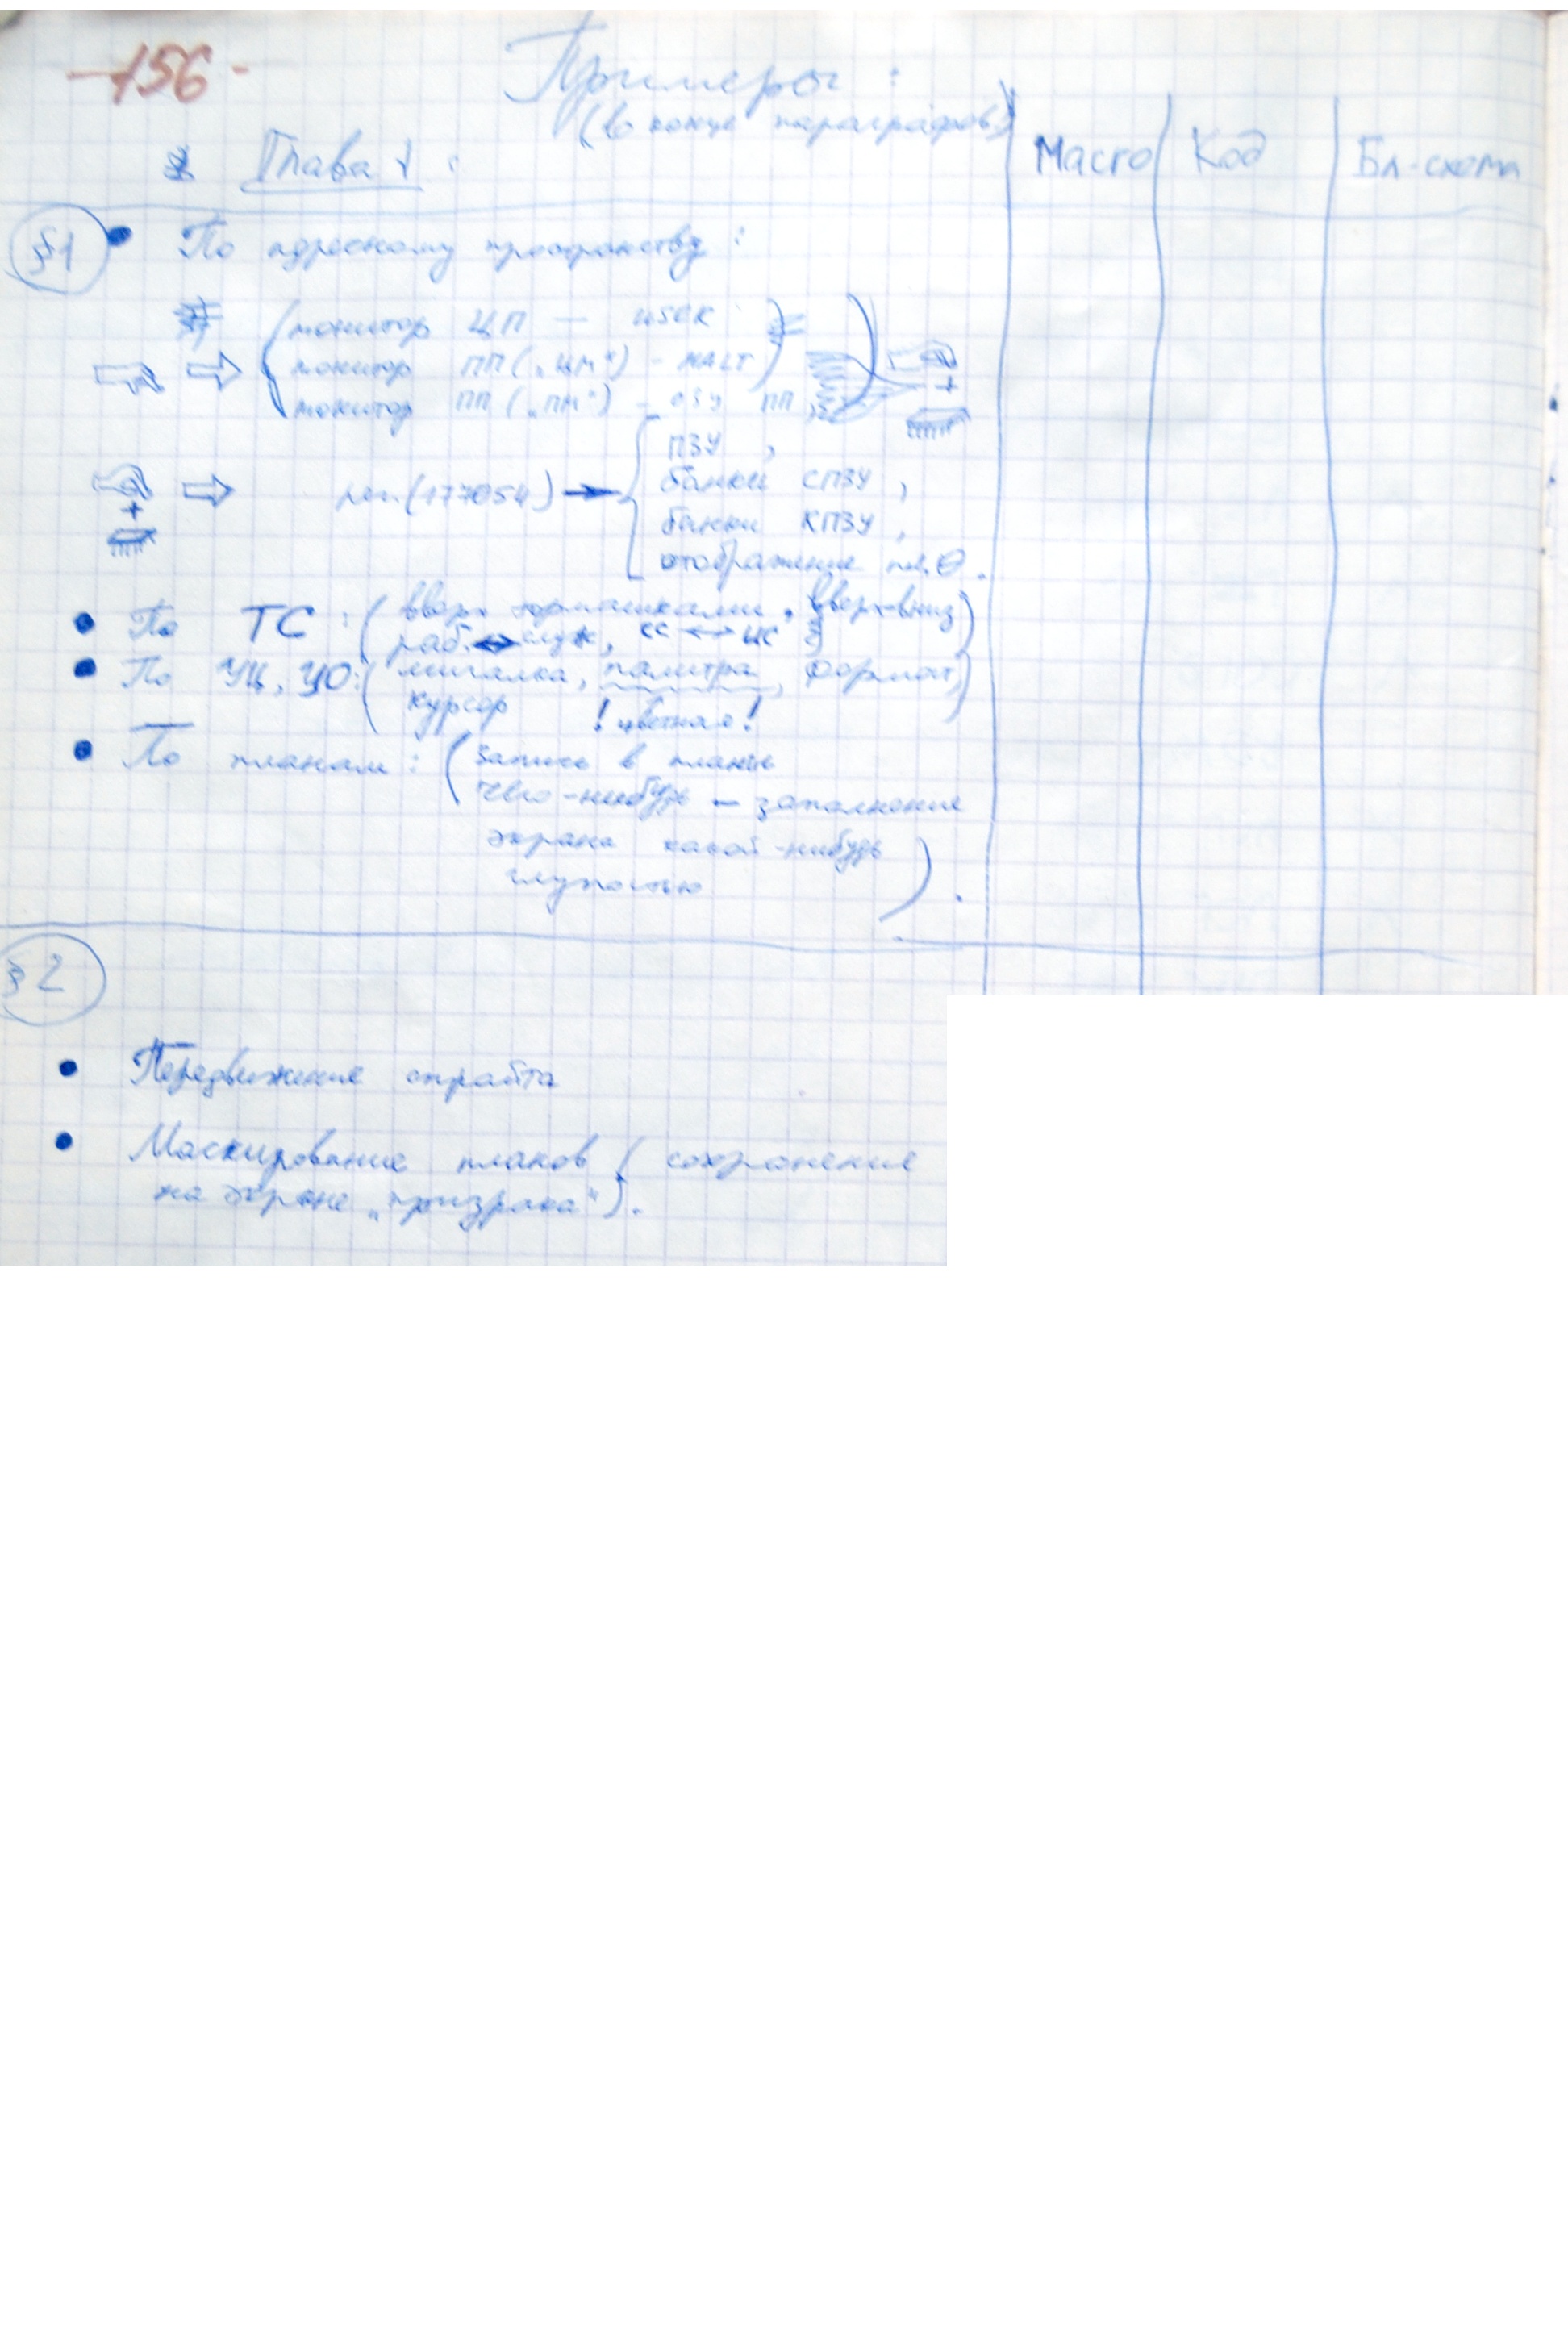 -156-
Примеры:
(в конце параграфов)
Глава 1:
Macro Код Бл-схема
§1 • По адресному пространству:
монитор ЦП —
монитор ПП („ЦМ“) - HALT
монитор ПП („ПМ“) - ОЗУ ПП,
ПЗУ,
рег. (177054) → банки СПЗУ,
+ банки КПЗУ,
отображение
• По ТС: (вверх ромашками, вверх-вниз
раб. ↔ служ, СС ↔ ЦС)
• По УЦ, УО: (мигалка, палитра, формат,
курсор !цветная!)
• По планам: (Запись в планы
чего-нибудь - заполнение
экрана какой-нибудь
глупостью).
§2
• Передвижение спрайта
• Маскирование планов (сохранение
на экране „призрака“).